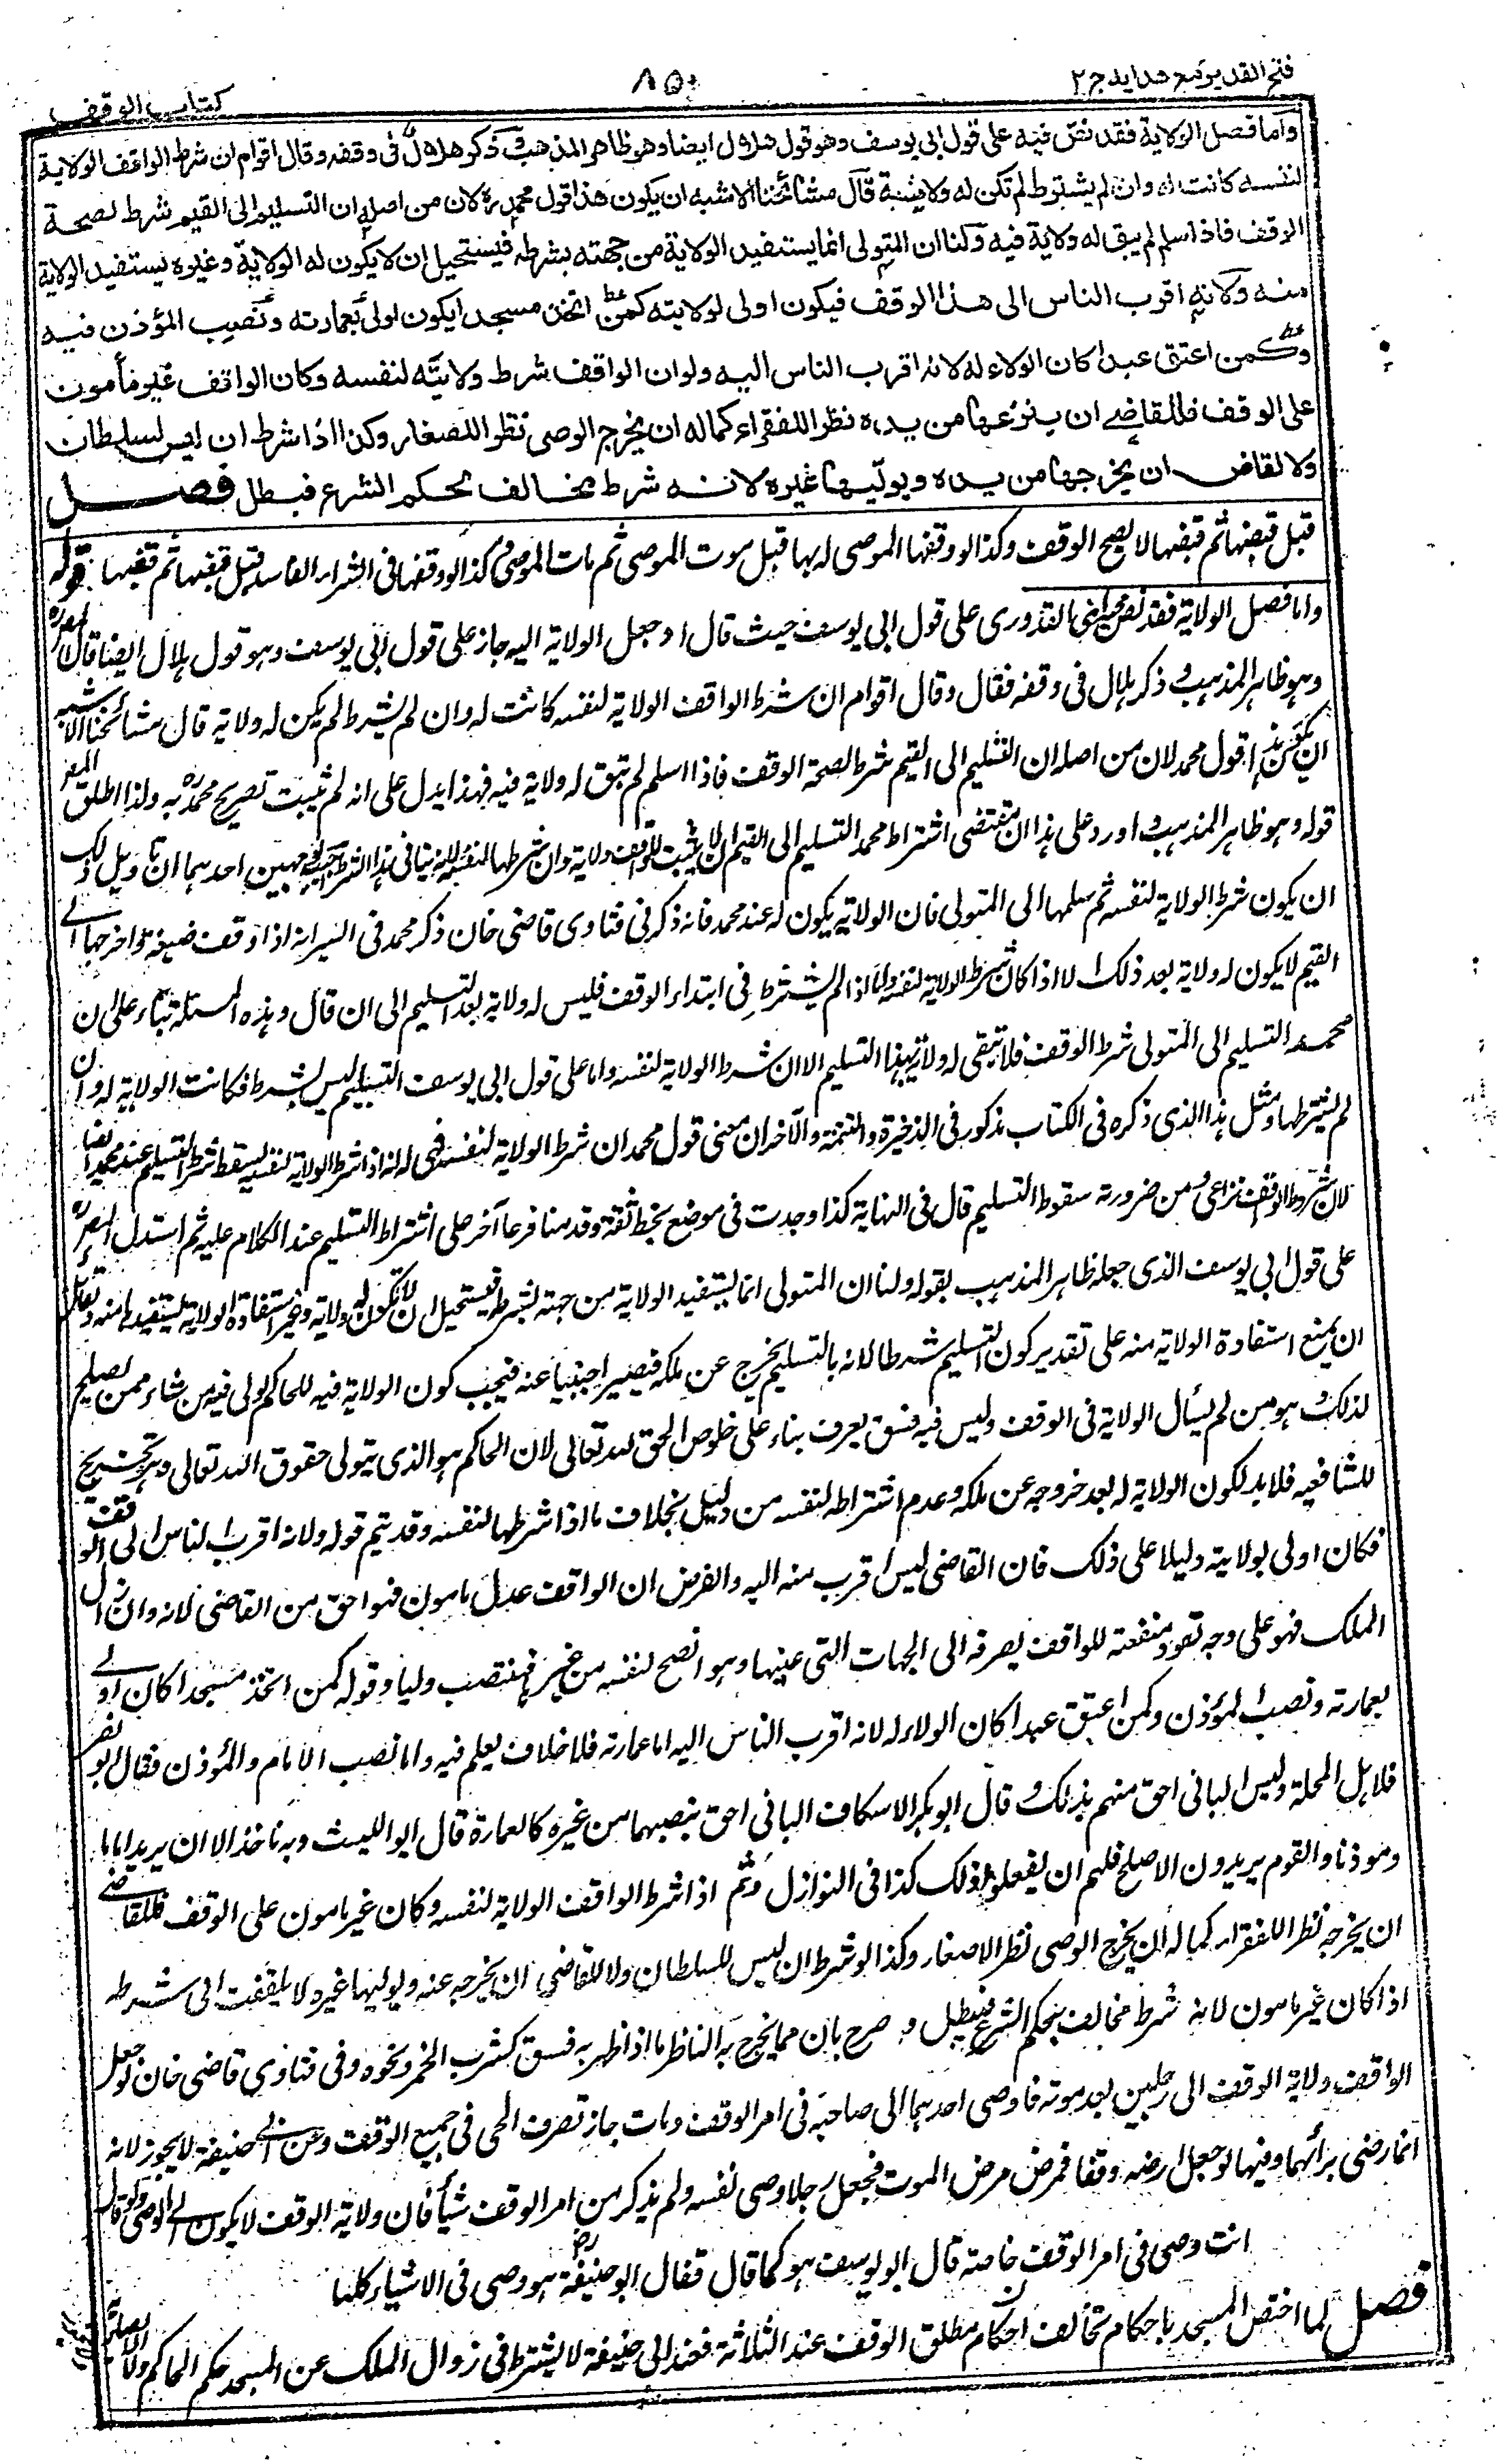 فتح القدير مع هدايه ج ٢
٨٥٠
كتاب الوقف
واما فصل الولاية فقد نص فيه على قول ابي يوسف وهو قول هلال ايضا وهو ظاهر المذهب وذكر هلال في وقفه وقال اقوام ان شرط الواقف الولاية
لنفسه كانت له وان لم يشترط لم تكن له ولاية قال مشائخنا الاشبه ان يكون هذا قول محمد لان من اصله ان التسليم الى القيم شرط لصحة
الوقف فاذا سلم لم يبق له ولاية فيه ولنا ان المتولى انما يستفيد الولاية من جهته بشرطه فيستحيل ان لا يكون له الولاية وغيره يستفيد الولاية
منه ولانه اقرب الناس الى هذا الوقف فيكون اولى لولايته كمن اتخذ مسجدا يكون اولى بعمارته ونصب المؤذن فيه
وكمن اعتق عبدا كان الولاء له لانه اقرب الناس اليه ولو ان الواقف شرط ولايته لنفسه وكان الواقف غير مأمون
على الوقف فللقاضے ان ينزعها من يده نظرا للفقراء كما له ان يخرج الوصى نظرا للصغار وكذا اذا شرط ان ليس لسلطان
ولا لقاض ان يخرجها من يده ويوليها غيره لانه شرط مخالف لحكم الشرع فبطل فصل
قبل قبضها ثم قبضها لا يصح الوقف وكذا لو وقفها الموصى له بها قبل موت الموصى ثم مات الموصى وكذا لو وقفها فى الشراء الفاسد قبل قبضها ثم قبضها قوله
واما فصل الولاية فقد نص فيه اى القدورى على قول ابى يوسف حيث قال او جعل الولاية اليه جاز على قول ابى يوسف وهو قول هلال ايضا قال المصره
وهو ظاهر المذهب و ذكر هلال فى وقفه فقال وقال اقوام ان شرط الواقف الولاية لنفسه كانت له وان لم يشرط لم يكن له ولاية قال مشائخنا الاشبه
ان يكون هذا قول محمد لان من اصله ان التسليم الى القيم شرط لصحة الوقف فاذا سلم لم تبق له ولاية فيه فهذا يدل على انه لم يثبت تصريح محمد ره به ولذا اطلق المص
قوله وهو ظاهر المذهب و اورد على هذا ان مقتضى اشتراط محمد التسليم الى القيم ان لا يثبت للواقف ولاية وان شرطها لنفسه لانه ينافى هذا الشرط اجيب بوجهين احدهما ان تاويل ذلك
ان يكون شرط الولاية لنفسه ثم سلمها الى المتولى فان الولاية يكون له عند محمد فانه ذكر فى فتاوى قاضى خان ذكر محمد فى السير انه اذا وقف ضيعة واخرجها الے
القيم لا يكون له ولاية بعد ذلك الا اذا كان شرط الولاية لنفسه واما اذا لم يشترط فى ابتداء الوقف فليس له ولاية بعد التسليم الى ان قال وهذه المسئلة بناء على ان
محمد التسليم الى المتولى شرط الوقف فلا تبقى له ولاية بهذا التسليم الا ان شرط الولاية لنفسه واما على قول ابى يوسف التسليم ليس بشرط فكانت الولاية له وان
لم يشترطها ومثل هذا الذى ذكره فى الكتاب مذكور فى الذخيرة والتتمة والآخر ان معنى قول محمد ان شرط الولاية لنفسه فهى له انه اذا شرط الولاية لنفسه يسقط شرط التسليم عند محمد ايضا
لان شروط الواقف تراعى ومن ضرورته سقوط التسليم قال فى النهاية كذا وجدت فى موضع بخط ثقة وقدمنا فرعا آخر على اشتراط التسليم عند الكلام عليه ثم استدل المصره
على قول ابى يوسف الذى جعله ظاهر المذهب بقوله ولنا ان المتولى انما يستفيد الولاية من جهته بشرطه فيستحيل ان لا تكون له ولاية وغيره يستفيدها منه ولقائل
ان يمنع استفادة الولاية منه على تقدير كون التسليم شرطا لانه بالتسليم يخرج عن ملكه فيصير اجنبيا عنه فيجب كون الولاية فيه للحاكم يولى فيه من شاء ممن يصلح
لذلك وهو من لم يسأل الولاية فى الوقف وليس فيه فسق يعرف بناء على خلوص الحق لله تعالى لان الحاكم هو الذى يتولى حقوق الله تعالى وهو تخريج
للشافعيه فلا بد لكون الولاية له بعد خروجه عن ملكه وعدم اشتراطه لنفسه من دليل بخلاف ما اذا شرطها لنفسه وقد يتم قوله ولانه اقرب الناس الى الوقف
فكان اولى بولايته دليلا على ذلك فان القاضى ليس اقرب منه اليه والفرض ان الواقف عدل مامون فهو احق من القاضى لانه وان زال
الملك فهو على وجه تعود منفعته للواقف بصرفه الى الجهات التى عينها وهو انصح لنفسه من غيره فينتصب وليا وقوله كمن اتخذ مسجدا كان اولے
بعمارته ونصب المؤذن وكمن اعتق عبدا كان الولاء له لانه اقرب الناس اليه اما عمارته فلا خلاف يعلم فيه واما نصب الامام والمؤذن فقال ابو نصر
فلاهل المحلة وليس البانى احق منهم بذلك و قال ابو بكر الاسكاف البانى احق بنصبهما من غيره كالعمارة قال ابو الليث وبه ناخذ الا ان يريد اماما
ومؤذنا والقوم يريدون الاصلح فلهم ان يفعلوا ذلك كذا فى النوازل وثم اذا شرط الواقف الولاية لنفسه وكان غير مامون على الوقف فللقاضے
ان يخرجه نظرا للفقراء كما له ان يخرج الوصى نظرا لاصغار وكذا لو شرط ان ليس للسلطان ولا للقاضى ان يخرجه عنه ويوليها غيره لا يلتفت الى شرطه
اذا كان غير مامون لانه شرط مخالف لحكم الشرع فيبطل و صرح بان مما يخرج به الناظر ما اذا ظهر به فسق كشرب الخمر ونحوه وفى فتاوى قاضى خان لو جعل
الواقف ولاية الوقف الى رجلين بعد موته فاوصى احدهما الى صاحبه فى امر الوقف ومات جاز تصرف الحى فى جميع الوقف وعن ابے حنيفة لا يجوز لانه
انما رضى برائهما وفيها لو جعل ارضه وقفا فمرض مرض الموت فجعل رجلا وصى نفسه ولم يذكر من امر الوقف شيأ فان ولاية الوقف لا يكون الے الوصى ولو قال
انت وصى فى امر الوقف خاصة قال ابو يوسف هو كما قال فقال ابو حنيفة رض هو وصى فى الاشياء كلها
فصل لما اختص المسجد باحكام تخالف احكام مطلق الوقف عند الثلاثة فعند ابى حنيفة لا يشترط فى زوال الملك عن المسجد حكم الحاكم ولا